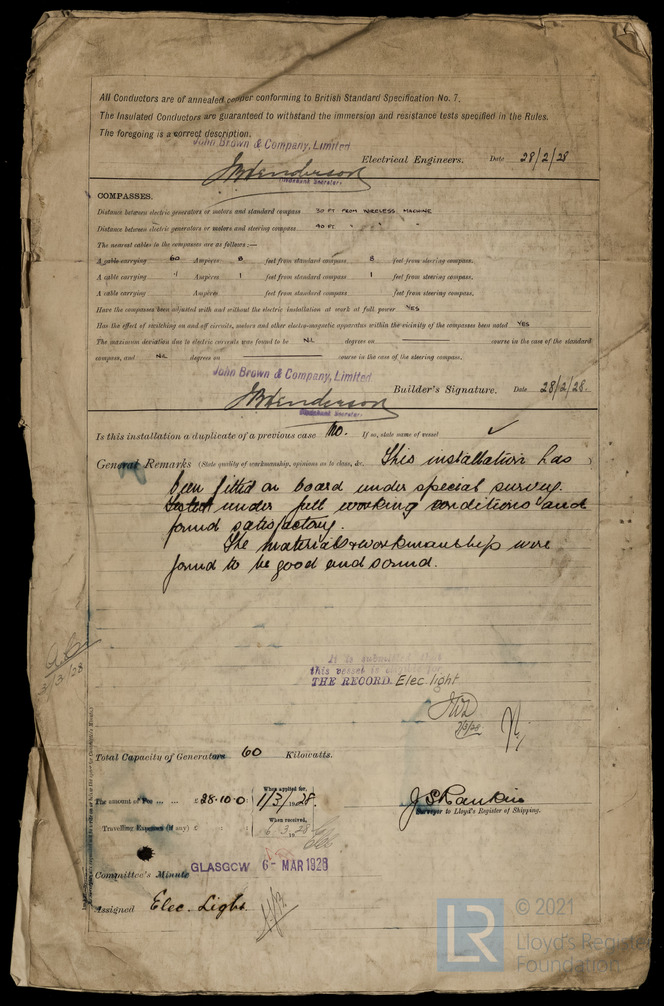 All Conductors are of annealed copper conforming to British Standard Specification No. 7.
The Insulated Conductors are guaranteed to withstand the immersion and resistance tests specified in the Rules.
The foregoing is a correct description.
John Brown & Company, Limited
J W Henderson Electrical Engineers. Date 28/2/28
Clydebank Secretary.
COMPASSES.
Distance between electric generators or motors and standard compass 30 FT FROM WIRELESS MACHINE
Distance between electric generators or motors and steering compass 40 FT " " "
The nearest cables to the compasses are as follows:—
A cable carrying 60 Ampères 8 feet from standard compass 8 feet from steering compass.
A cable carrying Ampères 1 feet from standard compass 1 feet from steering compass.
A cable carrying Ampères feet from standard compass feet from steering compass.
Have the compasses been adjusted with and without the electric installation at work at full power YES
Has the effect of switching on and off circuits, motors and other electro-magnetic apparatus within the vicinity of the compasses been noted YES
The maximum deviation due to electric currents was found to be NIL degrees on course in the case of the standard
compass, and NIL degrees on course in the case of the steering compass.
John Brown & Company, Limited
J W Henderson Builder's Signature. Date 28/2/28.
Clydebank Secretary.
Is this installation a duplicate of a previous case No. If so, state name of vessel ✓
General Remarks (State quality of workmanship, opinions as to class, &c. This installation has
been fitted on board under special survey
tested under full working conditions and
found satisfactory.
The materials & workmanship were
found to be good and sound.
It is submitted that
this vessel is eligible for
THE RECORD. Elec. light
7/3/28
3/3/28
Total Capacity of Generators 60 Kilowatts.
The amount of Fee ... ... £ 28.10.0 : When applied for, 1/3/1928.
J S Rankin
Surveyor to Lloyd's Register of Shipping.
Travelling Expenses (if any) £ : : When received, 6.3.1928
Committee's Minute GLASGOW 6- MAR 1928
Assigned Elec. Light.
LR © 2021
Lloyd's Register
Foundation